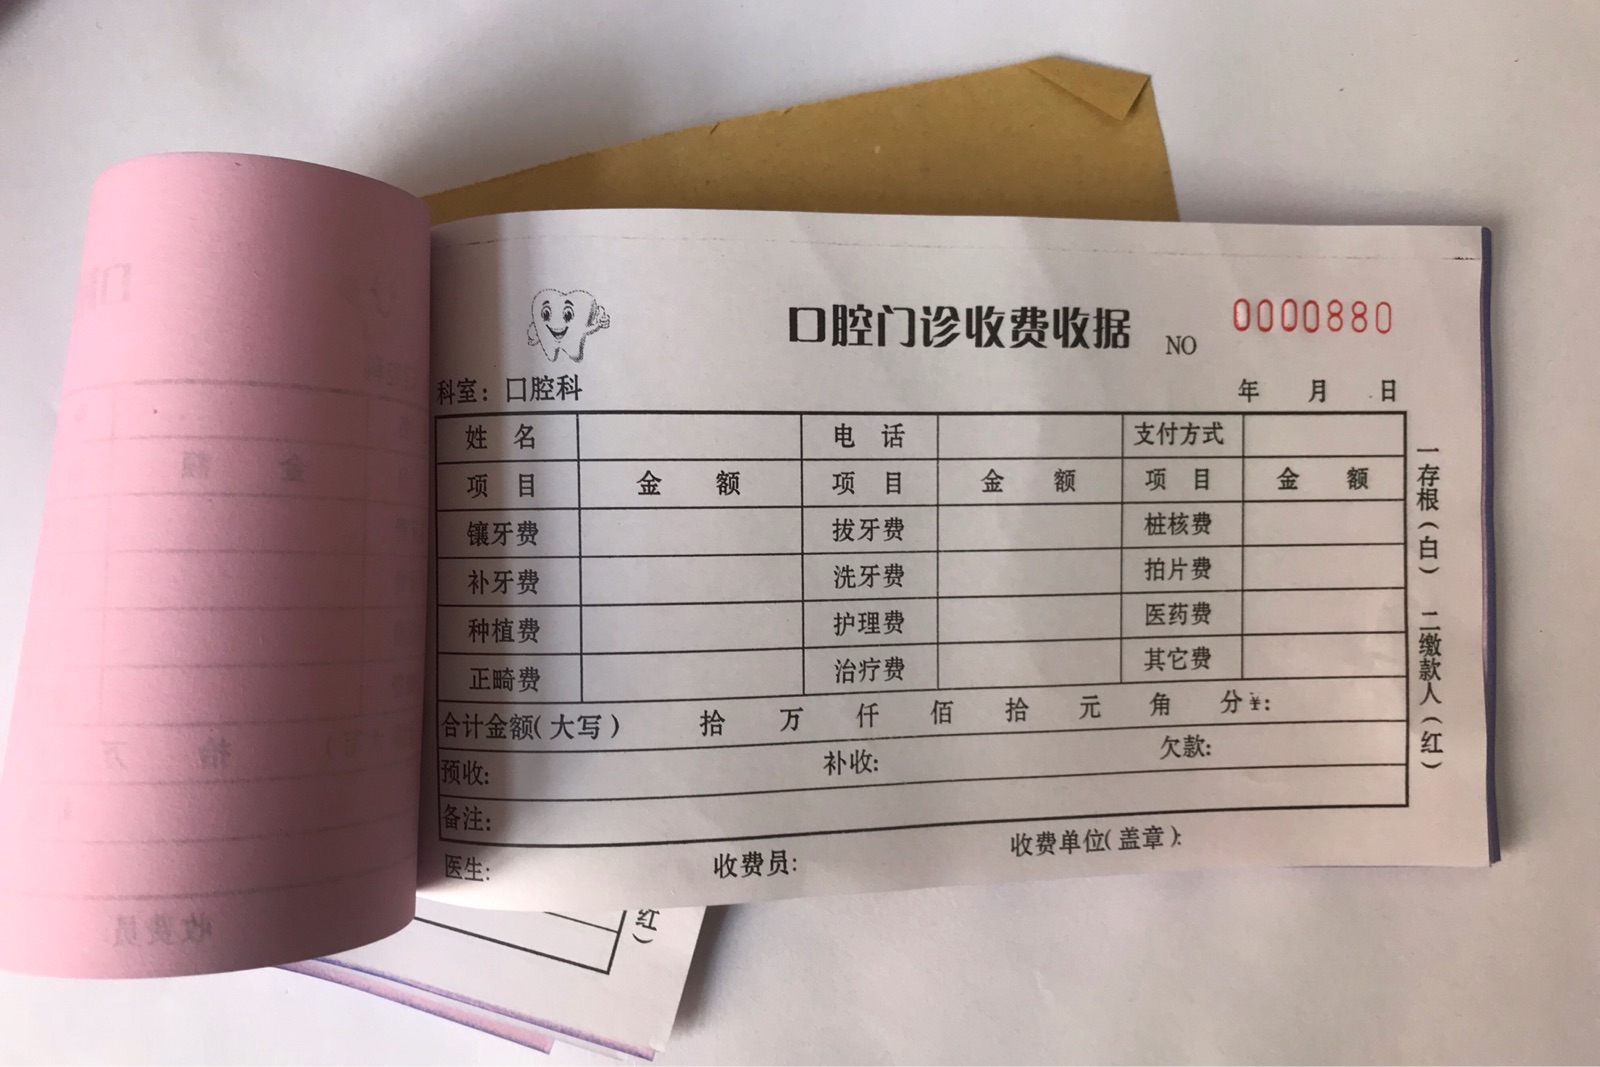 口腔门诊收费收据 NO 0000880
科室：口腔科 年 月 日
姓 名 电 话 支付方式
项 目 金 额 项 目 金 额 项 目 金 额
镶牙费 拔牙费 桩核费
补牙费 洗牙费 拍片费
种植费 护理费 医药费
正畸费 治疗费 其它费
合计金额(大写) 拾 万 仟 佰 拾 元 角 分 ¥:
预收: 补收: 欠款:
备注:
医生: 收费员: 收费单位(盖章):
一存根(白) 二缴款人(红)
红)
金 额
拾 万
收费员